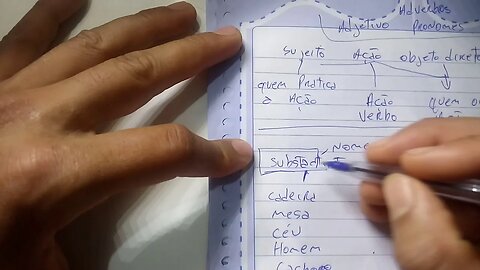 Advérbios
Adjetivo Pronomes
Sujeito Ação objeto direto
quem Pratica
a Ação Ação quem ou
Verbo
Nome
Substant
cadeira
Mesa
céu
Homem